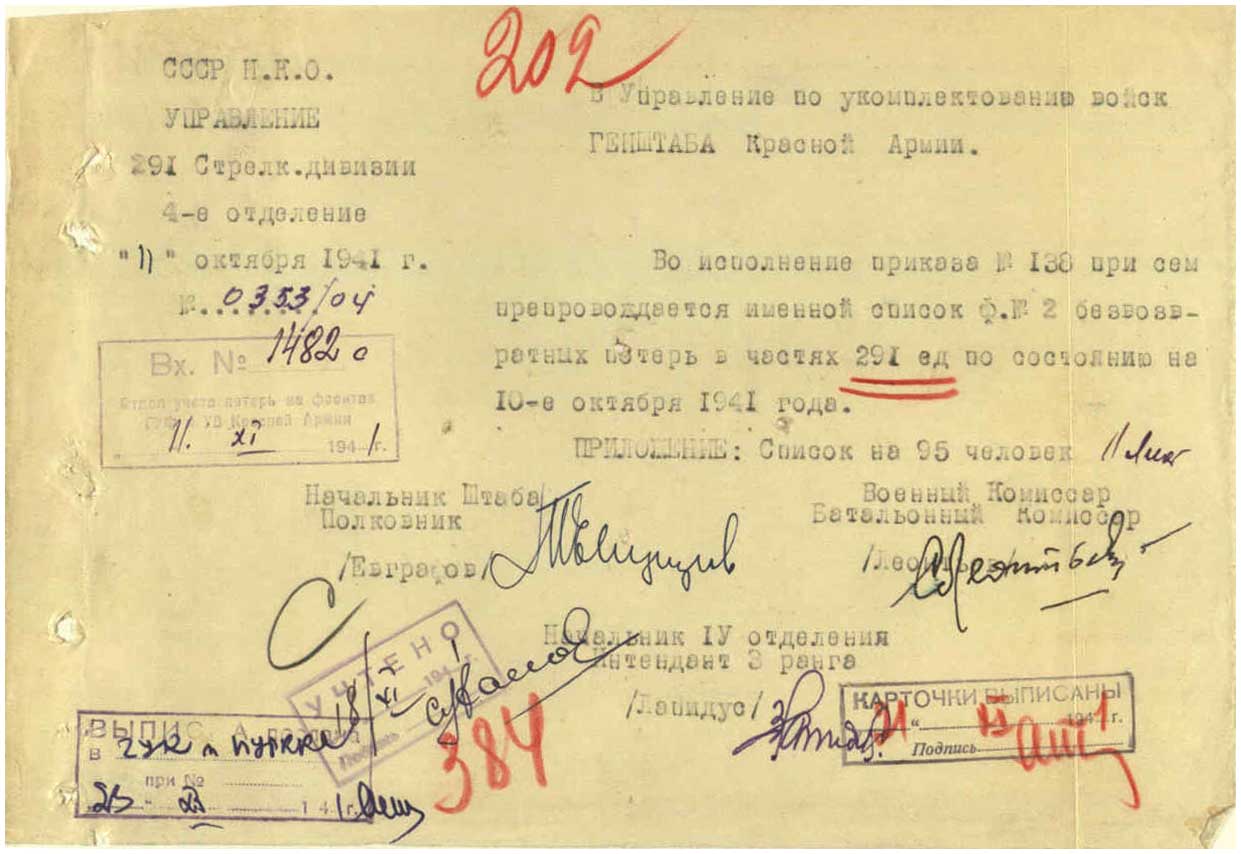 202
СССР Н.К.О.
УПРАВЛЕНИЕ
291 Стрелк.дивизии
4-е отделение
"11" октября 1941 г.
№ 0353/04
В Управление по укомплектованию войск
ГЕНШТАБА Красной Армии.
Во исполнение приказа № 138 при сем
препровождается именной список ф.№ 2 безвозв-
ратных потерь в частях 291 сд по состоянию на
10-е октября 1941 года.
ПРИЛОЖЕНИЕ: Список на 95 человек
Вх. № 1482 с
Отдел учета потерь на фронтах
УВ Красной Армии
11. XI 1941г.
Начальник Штаба/
Полковник
/Евграфов/
Военный Комиссар
Батальонный Комиссар
/Леонтьев/
Начальник IУ отделения
Интендант 3 ранга
/Лапидус/
УЧТЕНО
18/XI 194 г.
Подпись
384
ВЫПИСКА
в ГУК и ПУРККА
при №
23 " XI 1 41г.
КАРТОЧКИ ВЫПИСАНЫ
21 " 1941 г.
Подпись